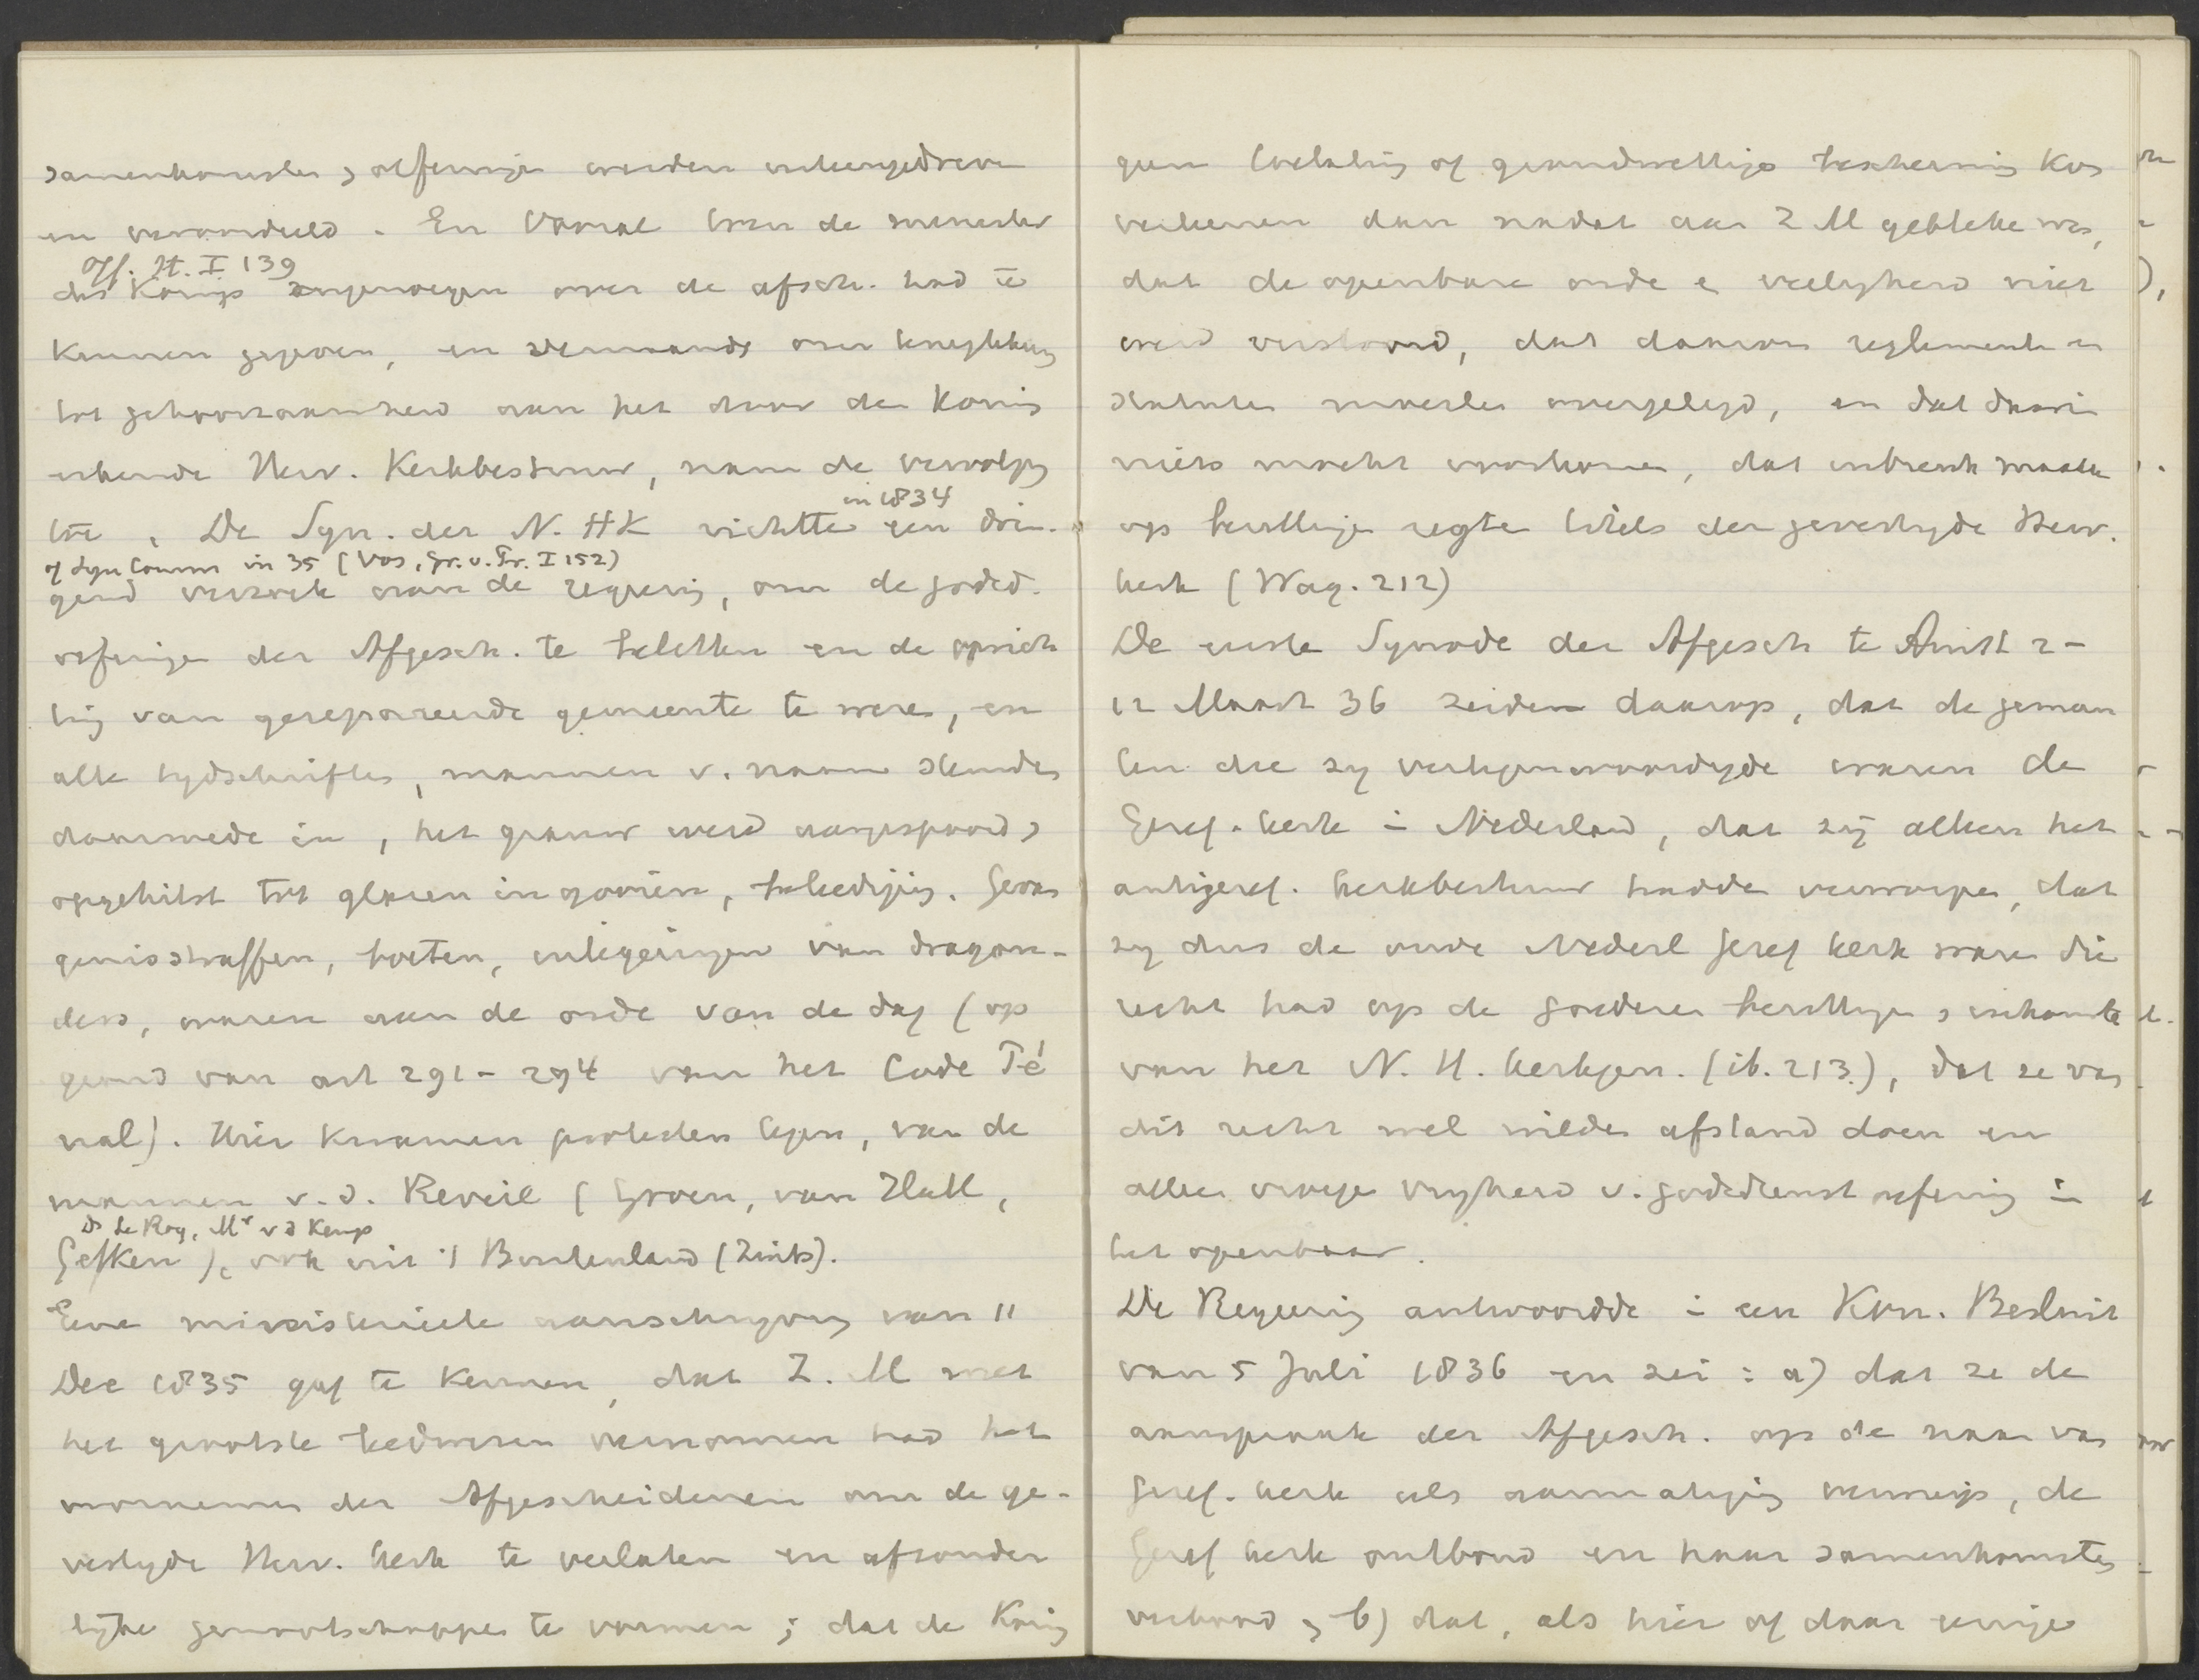 samenkomsten & oefeningen werden uiteengedreven
en veroordeeld. En vooral toen de minister
Off. H. I 139
des Konings ongenoegen over de afsch. had te
kennen gegeven, en vermaande om terugtekering
tot gehoorzaamheid aan het door den Koning
erkende Herv. Kerkbestuur, nam de vervolging
in 1834
toe. De Syn. der N. HK richtte een drin-
of Syn Comm in 35 (Vos, Gr. v. Pr. I 152)
gend verzoek aan de regering, om de godsd.
oefeningen der Afgesch. te beletten en de oprich
ting van gesepareerde gemeente te weren, en
alle tydschriften, mannen v. naam stemden
daarmede in, het grauw werd aangespoord &
opgehitst tot glazen ingooien, beleediging. Gevan
genisstraffen, boeten, inlegeringen van dragon-
ders, waren aan de orde van de dag (op
grond van art 291 - 294 van het Code Pé
nal). Hier kwamen protesten tegen, van de
mannen v.d. Reveil (Groen, van Hall,
Ds Le Roy, Mr v d Kemp
Gefken), ook uit 't Buitenland (Zwits).
Eene ministerieele aanschryving van 11
Dec 1835 gaf te kennen, dat Z. M met
het grootste leedwezen vernomen had het
voornemen der Afgescheidenen om de ge-
vestigde Herv. kerk te verlaten en afzonder
lyke genootschappen te vormen; dat de Koning
geen toelating of grondwettige bescherming kon
verleenen dan nadat aan Z M gebleken was,
dat de openbare orde en veiligheid niet
werd verstoord, dat daarvan reglementen en
statuten moesten overgelegd, en dat daarin
niets mocht voorkomen, dat inbreuk maakte
op bezittingen regten titels der gevestigde Herv.
kerk (Wag. 212)
De eerste Synode der Afgesch te Amst 2-
12 Maart 36 zeiden daarop, dat de gemeen
ten die zy vertegenwoordigde waren de
Geref. kerk in Nederland, dat zij alleen het
antigeref. kerkbestuur hadden verworpen, dat
zy dus de oude Nederl Geref kerk waren die
recht had op de goederen bezittingen & inkomsten
van het N. H. kerkgen. (ib. 213.), dat ze van
dit recht wel wilden afstand doen en
alleen vroegen vryheid v. godsdienst oefening in
het openbaar.
De Regeering antwoordde in een Kon. Besluit
van 5 Juli 1836 en zei: a) dat ze de
aanspraak der Afgesch. op de naam van
Geref. kerk als aanmatiging verwierp, de
Geref kerk ontbond en haar samenkomsten
verbood, b) dat, als hier of daar eenige